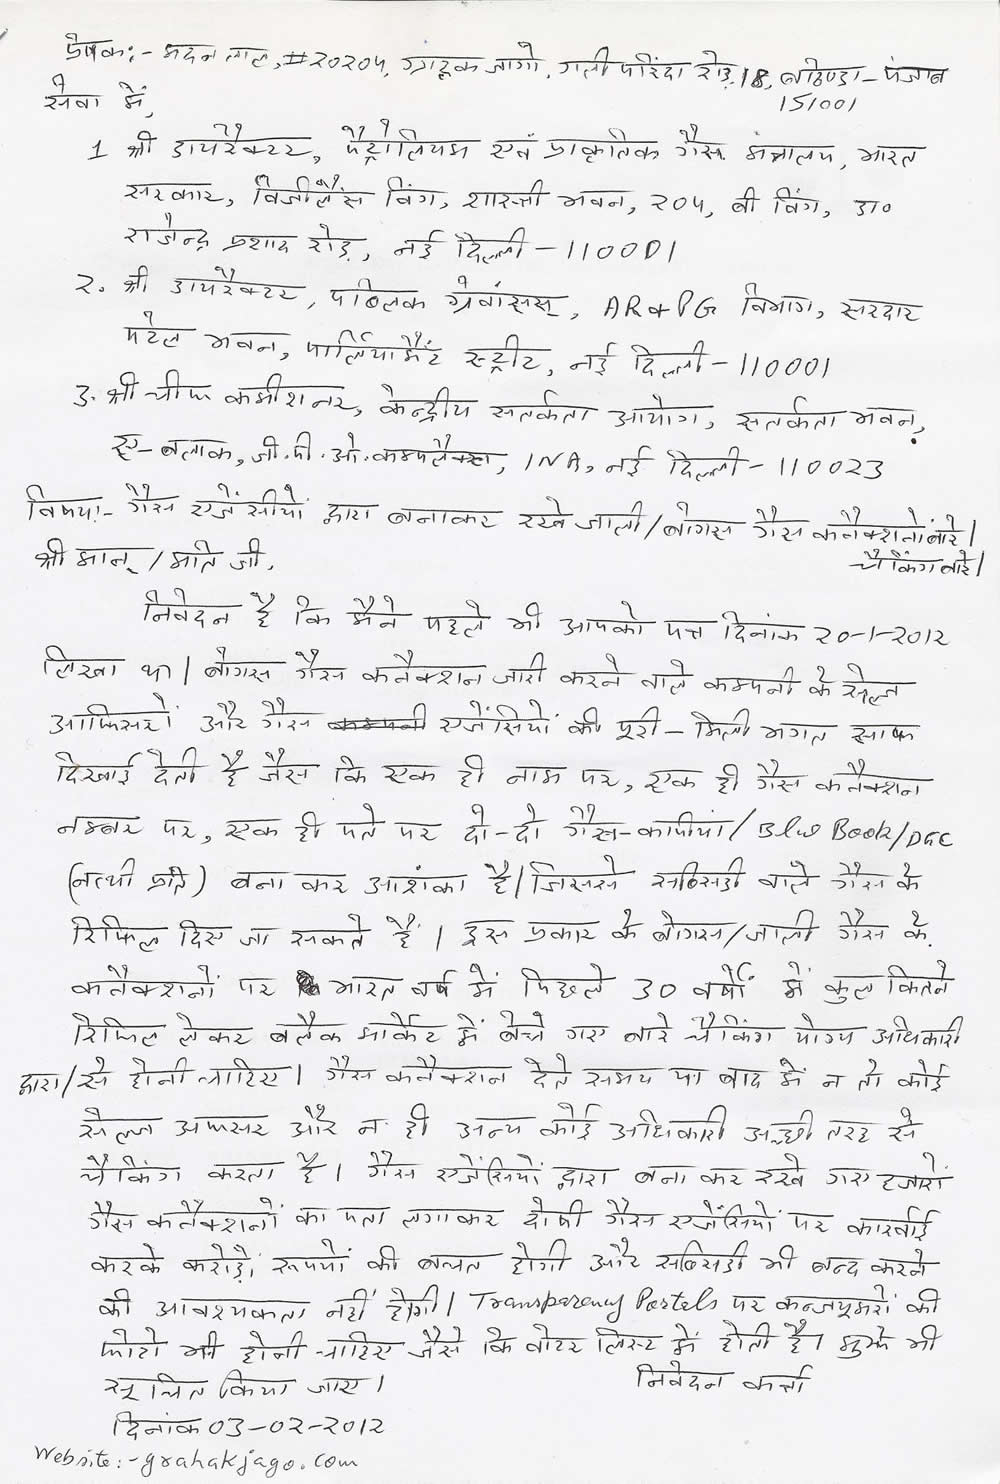 प्रेषक:- मदन लाल, #20204, ग्राहक जागो, गली परिंदा रोड़, 1B, बठिण्डा - पंजाब
151001
सेवा में,
1 श्री डायरैक्टर, पैट्रोलियम एवं प्राकृतिक गैस मंत्रालय, भारत
सरकार, विजीलैंस विंग, शास्त्री भवन, २०५, बी विंग, डा०
राजेन्द्र प्रशाद रोड़, नई दिल्ली - 110001
२. श्री डायरैक्टर, पब्लिक ग्रेवांसस्, AR&PG विभाग, सरदार
पटेल भवन, पार्लियामैंट स्ट्रीट, नई दिल्ली - 110001
३. श्री चीफ कमीशनर, केन्द्रीय सतर्कता आयोग, सतर्कता भवन,
ए-बलाक, जी.पी.ओ. कम्पलैक्स, INA, नई दिल्ली - 110023
विषय:- गैस एजेंसीयों द्वारा बनाकर रखे जाली/बोगस गैस कनैक्शनों बारे।
चैकिंग बारे।
श्री मान्/मति जी,
निवेदन है कि मैंने पहले भी आपको पत्र दिनांक 20-1-2012
लिखा था। बोगस गैस कनैक्शन जारी करने वाले कम्पनी के सेल्ज
आफिसरों और गैस कम्पनी एजेंसियों की पूरी - मिली भगत साफ
दिखाई देती है जैसे कि एक ही नाम पर, एक ही गैस कनैक्शन
नम्बर पर, एक ही पते पर दो-दो गैस-कापीयां/Blue Book/DGC
(नत्थी प्रति) बना कर आशंका है। जिससे सब्सिडी वाले गैस के
रिफिल दिए जा सकते हैं। इस प्रकार के बोगस/जाली गैस के
कनैक्शनों पर भारत वर्ष में पिछले 30 वर्षों में कुल कितने
रिफिल लेकर बलैक मार्केट में बेचे गए बारे चैकिंग योग्य अधिकारी
द्वारा/से होनी चाहिए। गैस कनैक्शन देते समय या बाद में न तो कोई
सेल्ज अफसर और न ही अन्य कोई अधिकारी अच्छी तरह से
चैकिंग करता है। गैस एजेंसियों द्वारा बना कर रखे गए हजारों
गैस कनैक्शनों का पता लगाकर दोषी गैस एजेंसियों पर कार्रवाई
करके करोड़ों रूपयों की बचत होगी और सब्सिडी भी बन्द करने
की आवश्यकता नहीं होगी। Transparency Portels पर कन्जयूमरों की
फोटो भी होनी चाहिए जैसे कि वोटर लिस्ट में होती है। मुझे भी
सूचित किया जाए।
निवेदन कर्त्ता
दिनांक 03-02-2012
Website:-grahakjago.com